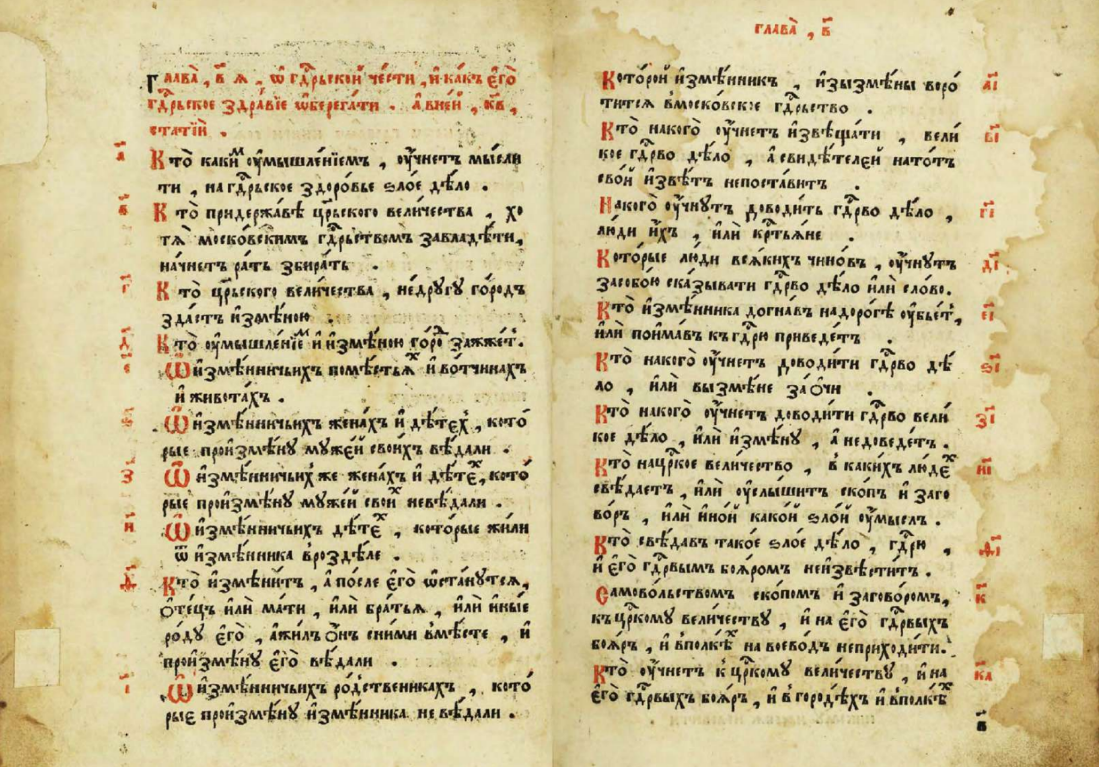 Глава̀, в҃ я, ѡ҆ гдⷭ҇рьской че́сти, и҆ ка́къ є҆го̀
гдⷭ҇рьское здра́вїе ѡ҆берега́ти. а҆ в не́й, кв҃,
статїи̑.
а҃
Кто̀ какиⷨ оу҆мышле́нїемъ, оу҆чнетъ мы́сли
ти, на гдⷭ҇рьское здоро́вье ѕло́е дѣ́ло.
в҃
Кто̀ при держа́вѣ црⷭ҇ьского вели́чества, хо
тя̀ моско́вскимъ гдⷭ҇рьствомъ завладѣ́ти,
на́чнетъ ра́ть збира́ть.
г҃
Кто̀ црⷭ҇ьского вели́чества, не́другу го́родъ
зда́стъ и҆змѣ́ною.
д҃
Кто̀ оу҆мышле́нїеⷨ и҆ и҆змѣ́ною гороⷣ зажже́т.
є҃
Ѿ и҆змѣ́нничьихъ помѣ́стьяⷯ и҆ во́тчинахъ
и҆ живота́хъ.
ѕ҃
Ѿ и҆змѣ́нничьихъ жена́хъ и҆ дѣ́теⷯ, кото́
рые про и҆змѣ́ну муже́й свои́хъ вѣ́дали.
з҃
Ѿ и҆змѣ́нничьихъ же жена́хъ и҆ дѣ́теⷯ, кото́
рые про и҆змѣ́ну муже́й своиⷯ не вѣ́дали.
и҃
Ѿ и҆змѣ́нничьихъ дѣ́теⷯ, кото́рые жи́ли
ѿ и҆змѣ́нника в розде́ле.
ѳ҃
Кто̀ и҆змѣ́нитъ, а҆ по́сле є҆го̀ ѡ҆ста́нутся,
о҆те́цъ и҆лѝ ма́ти, и҆лѝ бра́тья, и҆лѝ и҆ны́е
ро́ду є҆го̀, а҆ жи́лъ о҆нъ с ни́ми вмѣ́сте, и҆
про и҆змѣ́ну є҆го̀ вѣ́дали.
і҃
Ѿ и҆змѣ́нничьихъ ро́дственикахъ, кото́
рые про и҆змѣ́ну и҆змѣ́нника не вѣ́дали.
глава̀, в҃
Кото́рой и҆змѣ́нникъ, и҆зызмѣ́ны воро́
тится в моско́вское гдⷭ҇рьство.
аі҃
Кто̀ на кого̀ оу҆чнетъ и҆звѣща́ти, вели́
кое гдⷭ҇рво дѣ́ло, а҆ свидѣ́телей на то́тъ
сво́й и҆звѣ́тъ не поста́витъ.
ві҃
На кого̀ оу҆чнутъ дово́дить гдⷭ҇рво дѣ́ло,
лю́ди и҆́хъ, и҆лѝ крⷭ҇тья́не.
гі҃
Кото́рые лю́ди вся́кихъ чино́въ, оу҆чнутъ
за собо́ю ска́зывати гдⷭ҇рво дѣ́ло и҆лѝ сло́во.
ді҃
Кто̀ и҆змѣ́нника догна́въ на доро́гѣ оу҆бье́т,
и҆лѝ пои҆ма́въ къ гдⷭ҇рю приведе́тъ.
єі҃
Кто̀ на кого̀ оу҆чнетъ дово́дити гдⷭ҇рво дѣ́
ло, и҆лѝ вызмѣ́не за о҆́чи.
ѕі҃
Кто̀ на кого̀ оу҆чнетъ дово́дити гдⷭ҇рво вели́
кое дѣ́ло, и҆лѝ и҆змѣ́ну, а҆ не доведе́тъ.
зі҃
Кто̀ на црⷭ҇кое вели́чество, в каки́хъ лю́деⷯ
свѣ́даетъ, и҆лѝ оу҆слы́шитъ ско́пъ и҆ заго
во́ръ, и҆лѝ и҆но́й како́й ѕло́й оу҆мыслъ.
иі҃
Кто̀ свѣ́давъ тако́е ѕло́е дѣ́ло, гдⷭ҇рю,
и҆ є҆го̀ гдⷭ҇рвымъ боя́ромъ не и҆звѣ́ститъ.
ѳі҃
Самово́льствомъ ско́помъ и҆ загово́ромъ,
къ црⷭ҇кому вели́честву, и҆ на є҆го̀ гдⷭ҇рвыхъ
боя́ръ, и҆ в полкѣⷯ на воево́дъ не приходи́ти.
к҃
Кто̀ оу҆чнетъ к црⷭ҇кому вели́честву, и҆ на
є҆го̀ гдⷭ҇рвыхъ боя́ръ, и҆ в городѣ́хъ и҆ в полкѣⷯ
ка҃
в҃